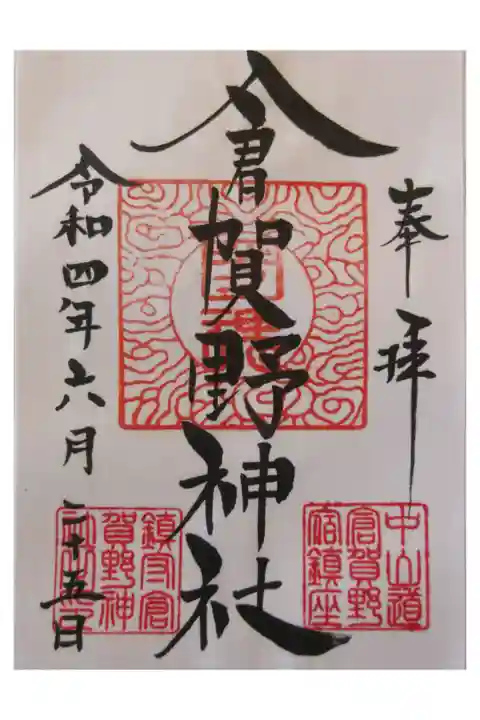 奉拝
中山道
倉賀野
宿鎮座
倉賀野神社
令和四年六月二十五日
鎮守倉
賀野神